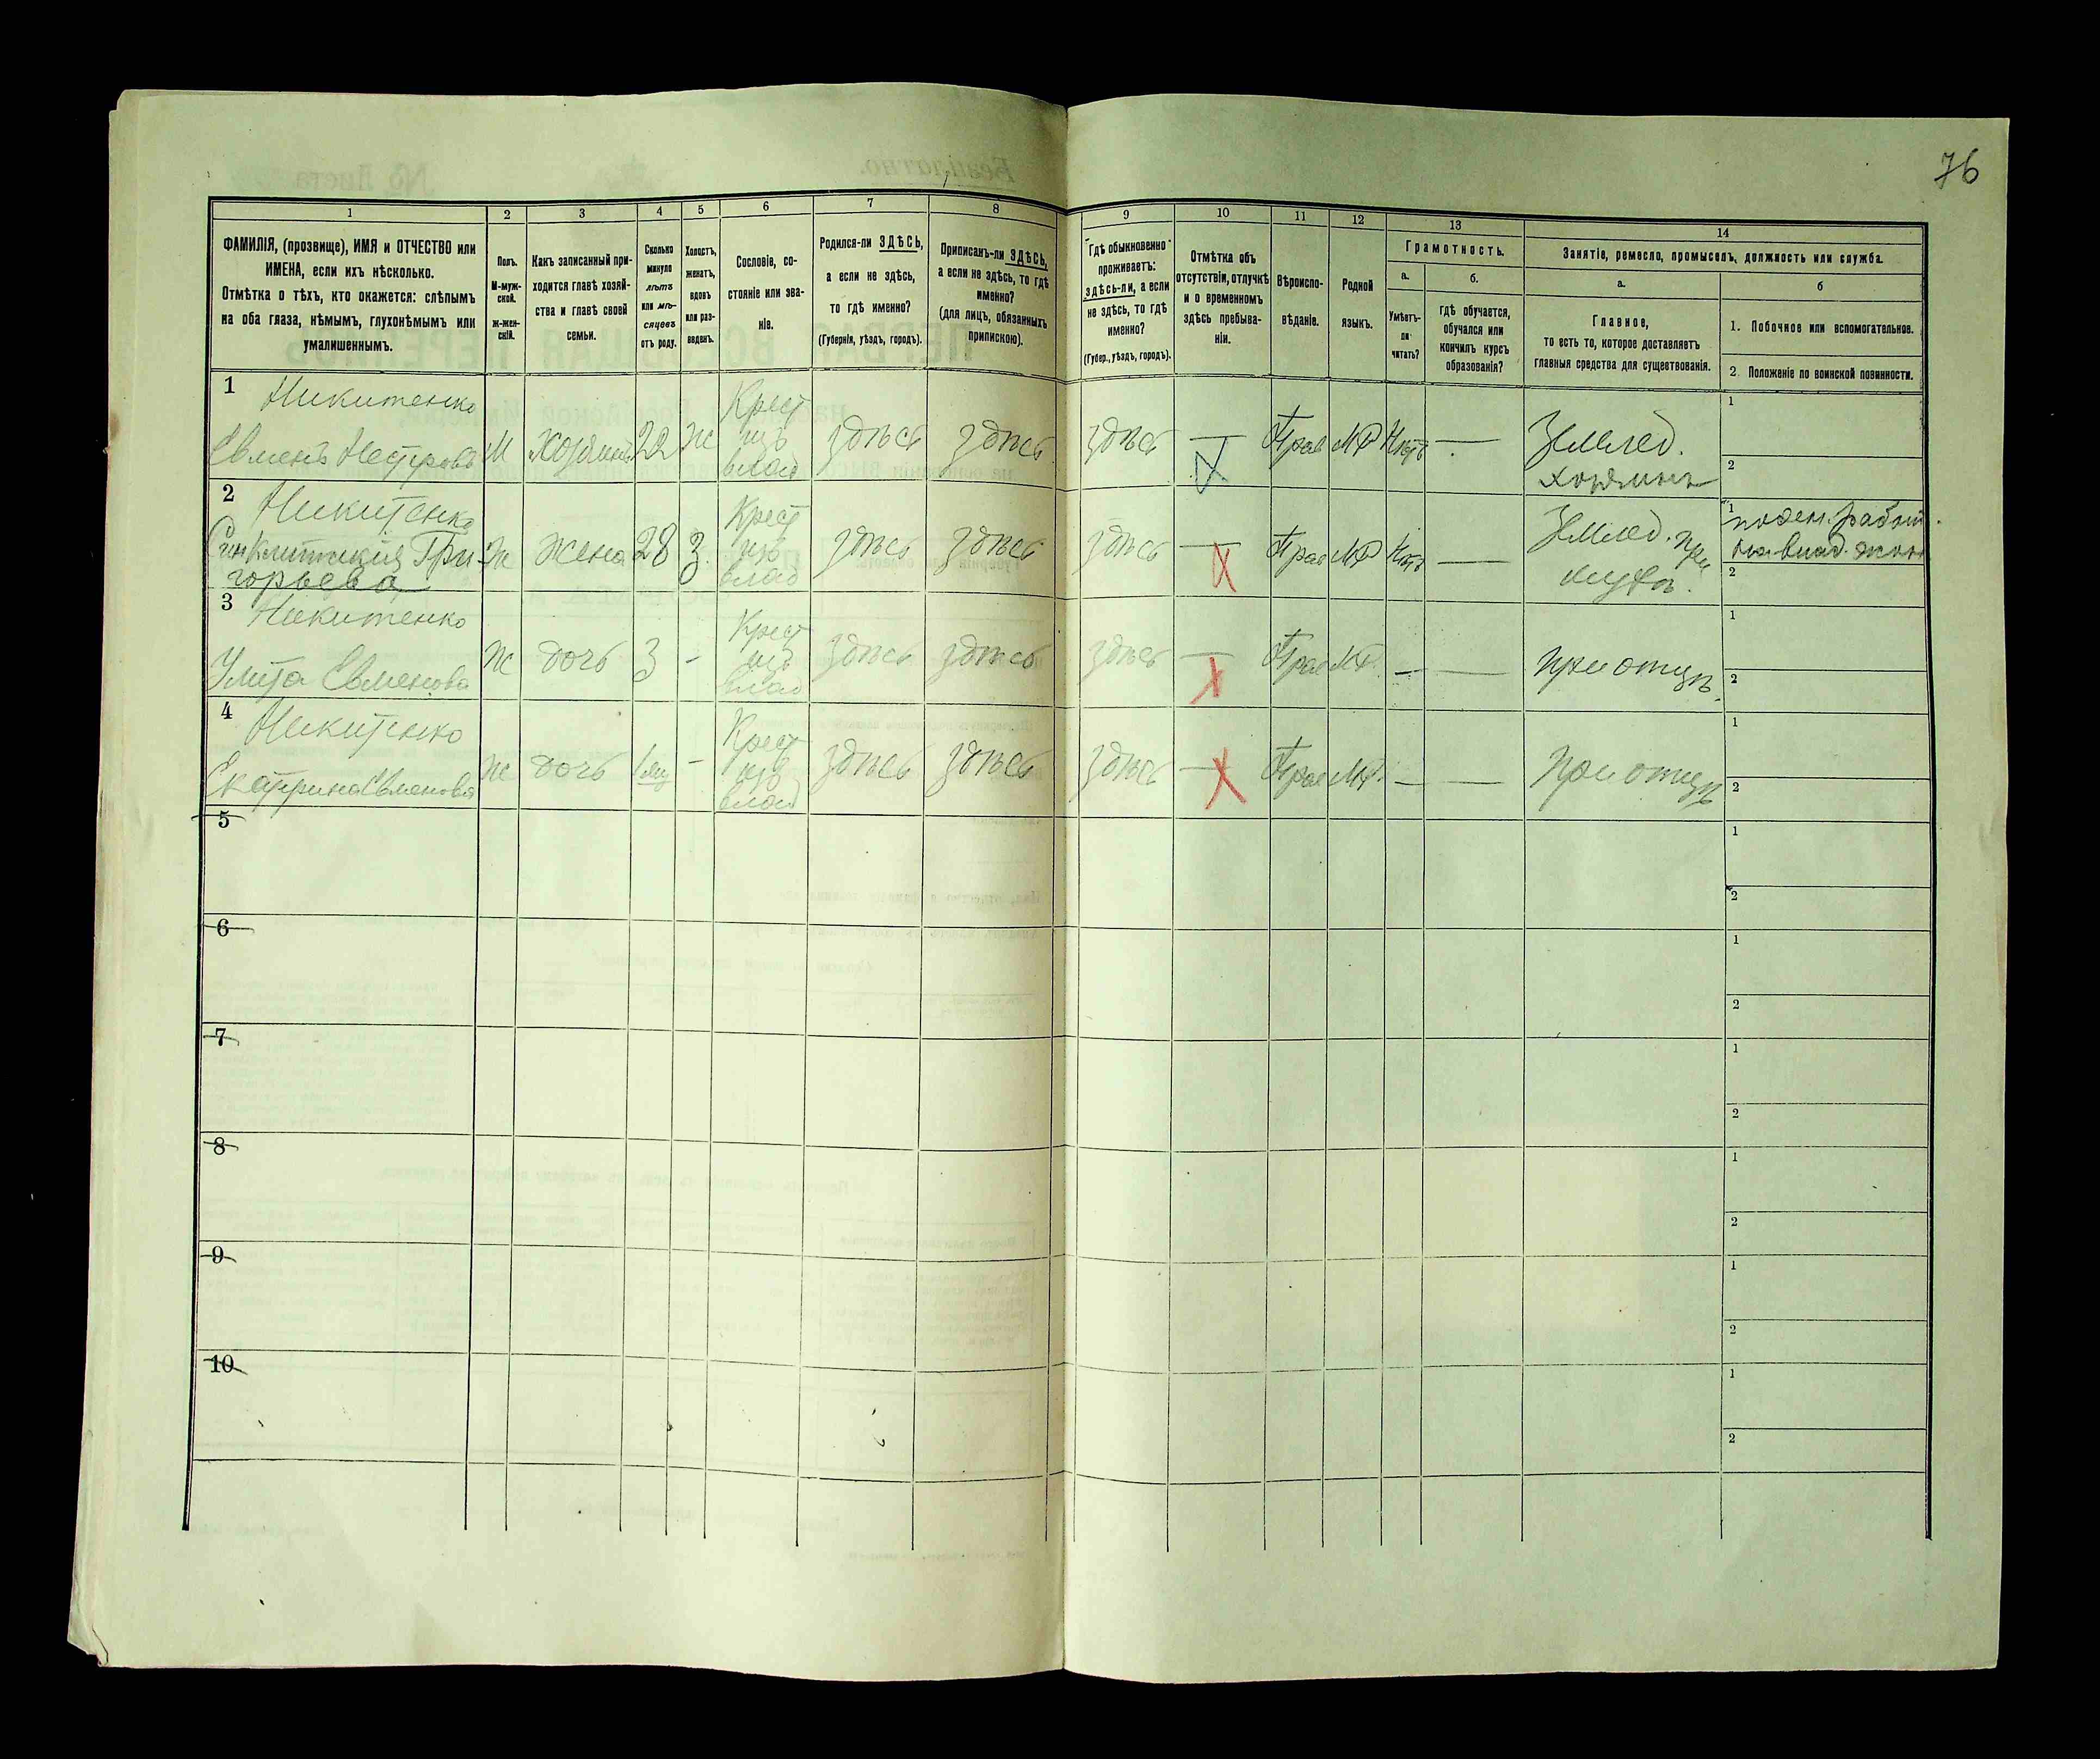 76
1 2 3 4 5 6 7 8 9 10 11 12 13 14
ФАМИЛІЯ, (прозвище), ИМЯ и ОТЧЕСТВО или
ИМЕНА, если ихъ нѣсколько.
Отмѣтка о тѣхъ, кто окажется: слѣпымъ
на оба глаза, нѣмымъ, глухонѣмымъ или
умалишеннымъ.
Полъ.
М-муж-
ской.
ж-жен-
скій.
Какъ записанный при-
ходится главѣ хозяй-
ства и главѣ своей
семьи.
Сколько
минуло
лѣтъ
или мѣ-
сяцевъ
отъ роду.
Холостъ,
женатъ,
вдовъ
или раз-
веденъ.
Сословіе, со-
стояніе или зва-
ніе.
Родился-ли ЗДѢСЬ,
а если не здѣсь,
то гдѣ именно?
(Губернія, уѣздъ, городъ).
Приписанъ-ли ЗДѢСЬ,
а если не здѣсь, то гдѣ
именно?
(для лицъ, обязанныхъ
припискою).
Гдѣ обыкновенно
проживаетъ:
здѣсь-ли, а если
не здѣсь, то гдѣ
именно?
(Губер., уѣздъ, городъ).
Отмѣтка объ
отсутствіи, отлучкѣ
и о временномъ
здѣсь пребыва-
ніи.
Вѣроиспо-
вѣданіе.
Родной
языкъ.
Грамотность.
а.
Умѣетъ-
ли
читать?
б.
гдѣ обучается,
обучался или
кончилъ курсъ
образованія?
Занятіе, ремесло, промыселъ, должность или служба.
а.
Главное,
то есть то, которое доставляетъ
главныя средства для существованія.
б
1. Побочное или вспомогательное.
2. Положеніе по воинской повинности.
1 Никитенко
Евменъ Нестеровъ М хозяинъ 22 ж Крест изъ влад здѣсь здѣсь здѣсь — Прав МР Нѣтъ — Землед. хозяинъ 1 2
2 Никитенко
Синклитикія Гри-
горьева Ж жена 28 З. Крест изъ влад здѣсь здѣсь здѣсь — Прав МР Нѣтъ — Землед. при мужѣ. 1 поден. работ. 2
3 Никитенко
Улита Евменова Ж дочь 3 - Крест изъ влад здѣсь здѣсь здѣсь — Прав МР. — — при отцѣ. 1 2
4 Никитенко
Екатерина Евменова Ж дочь 1 мц - Крест изъ влад здѣсь здѣсь здѣсь — Прав МР. — — при отцѣ 1 2
5 1 2
6 1 2
7 1 2
8 1 2
9 1 2
10 1 2